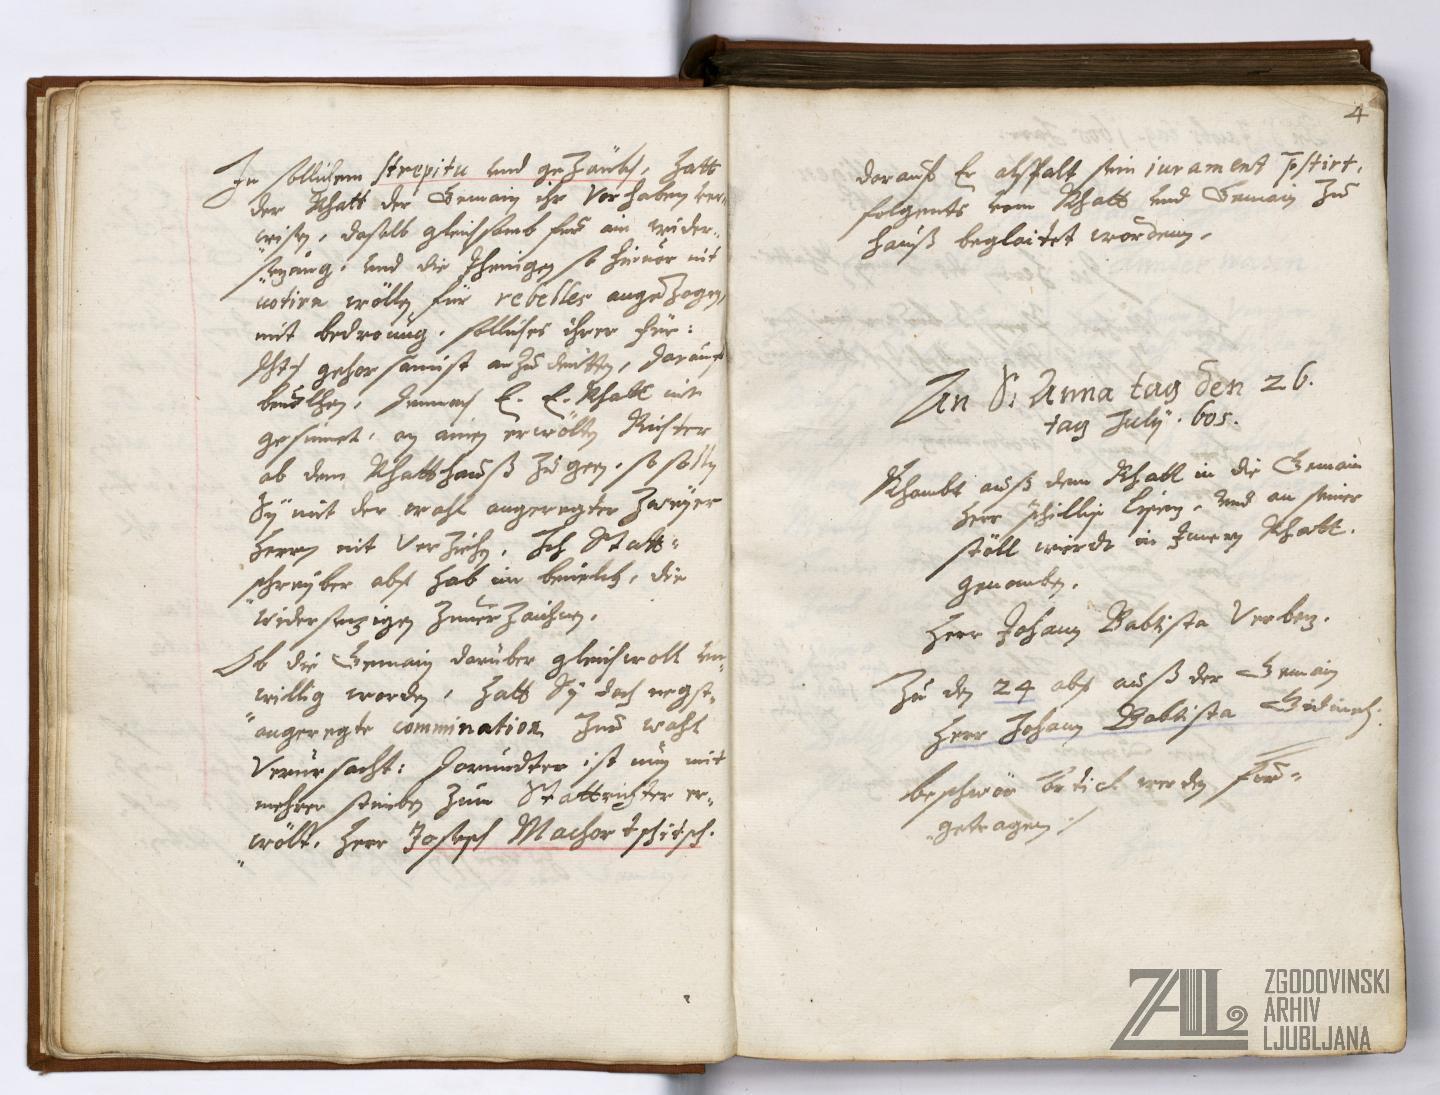 In sollichem strepitu und gezänckh, hatt
der Rhatt der Gemain ihr Vorhaben ver-
wisen, daselb gleichsamb für ain wider-
sezung, und die Jhenigen so hieuor nit
uotirn wöllen für rebelles angezogen,
mit bedroung, solliches ihrer Für:
gehorsamist anzudeitten, darauf
beuolhen, demnach E. E. Rhatt nit
gesinnet, on ainen erwölten Richter
ab dem Rhatthauß zugeen, so sollen
Sy mit der wahl angeregter Zwayer
Herrn nit Verziehen, Ich Statt-
schreyber aber hab im beuelch, die
widersezigen Zuuerzaichnen.
Ob die Gemain darüber gleichwoll un-
willig worden, hatt Sy doch negst-
angeregte commination zur wahl
Verursacht: darundter ist nun mit
mehrer stimben zum Stattrichter er-
wölt, Herr Joseph Machortschitsch.
4
darauf Er alßpalt sein iurament pstirt,
folgents vom Rhatt und Gemain zu
hauß beglaitet worden.
An S: Anna tag den 26.
tag July. 605.
Khombt auß dem Rhatt in die Gemain
Herr Phillip, und an seiner
stöll wierdt in Innern Rhatt
genomben,
Herr Johann Babtista Verbez.
Zu den 24 aber auß der Gemain
Herr Johann Babtista
beschwör Articl werden für-
getragen
ZAL ZGODOVINSKI
ARHIV
LJUBLJANA